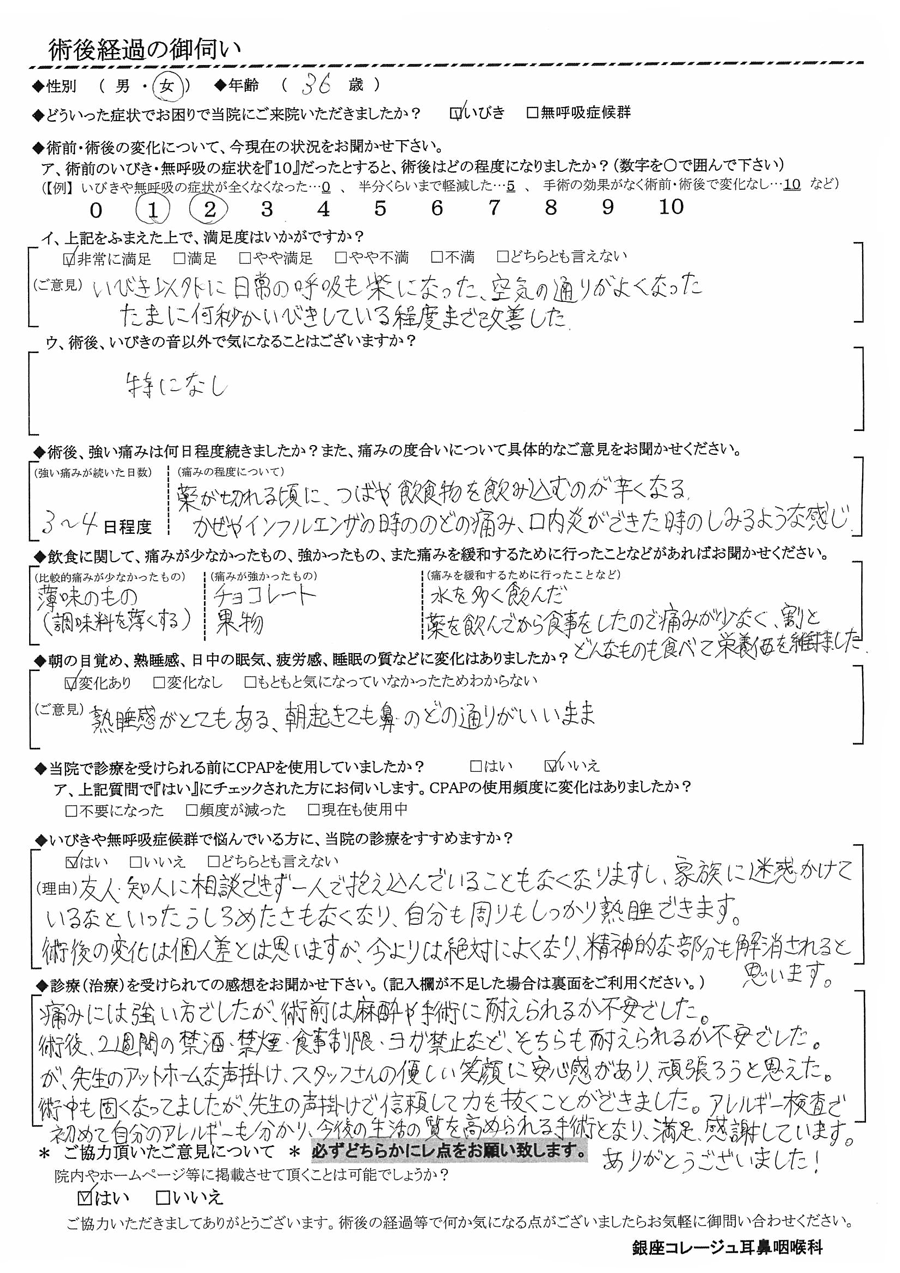 術後経過の御伺い
◆性別 ( 男 ・ 女 ) ◆年齢 ( 36 歳 )
◆どういった症状でお困りで当院にご来院いただきましたか? ☑いびき □無呼吸症候群
◆術前・術後の変化について、今現在の状況をお聞かせ下さい。
ア、術前のいびき・無呼吸の症状を『10』だったとすると、術後はどの程度になりましたか?(数字を〇で囲んで下さい)
(【例】 いびきや無呼吸の症状が全くなくなった…0 、 半分くらいまで軽減した…5 、 手術の効果がなく術前・術後で変化なし…10 など)
0 1 2 3 4 5 6 7 8 9 10
イ、上記をふまえた上で、満足度はいかがですか?
☑非常に満足 □満足 □やや満足 □やや不満 □不満 □どちらとも言えない
(ご意見) いびき以外に日常の呼吸も楽になった、空気の通りがよくなった
たまに何秒かいびきしている程度まで改善した.
ウ、術後、いびきの音以外で気になることはございますか?
特になし
◆術後、強い痛みは何日程度続きましたか?また、痛みの度合いについて具体的なご意見をお聞かせください。
(強い痛みが続いた日数) (痛みの程度について)
薬が切れる頃に、つばや飲食物を飲み込むのが辛くなる.
3〜4 日程度 かぜやインフルエンザの時ののどの痛み、口内炎ができた時のしみるような感じ.
◆飲食に関して、痛みが少なかったもの、強かったもの、また痛みを緩和するために行ったことなどがあればお聞かせください。
(比較的痛みが少なかったもの) (痛みが強かったもの) (痛みを緩和するために行ったことなど)
薄味のもの チョコレート 水を多く飲んだ
(調味料を薄くする) 果物 薬を飲んでから食事をしたので痛みが少なく、割と
どんなものも食べて栄養価を維持ました.
◆朝の目覚め、熟睡感、日中の眠気、疲労感、睡眠の質などに変化はありましたか?
☑変化あり □変化なし □もともと気になっていなかったためわからない
(ご意見) 熟睡感がとてもある、朝起きても鼻・のどの通りがいいまま
◆当院で診療を受けられる前にCPAPを使用していましたか? □はい ☑いいえ
ア、上記質問で『はい』にチェックされた方にお伺いします。CPAPの使用頻度に変化はありましたか?
□不要になった □頻度が減った □現在も使用中
◆いびきや無呼吸症候群で悩んでいる方に、当院の診療をすすめますか?
☑はい □いいえ □どちらとも言えない
(理由) 友人・知人に相談できず一人で抱え込んでいることもなくなりますし、家族に迷惑かけて
いるなといったうしろめたさもなくなり、自分も周りもしっかり熟睡できます。
術後の変化は個人差とは思いますが、今よりは絶対によくなり、精神的な部分も解消されると
思います。
◆診療(治療)を受けられての感想をお聞かせ下さい。(記入欄が不足した場合は裏面をご利用ください。)
痛みには強い方でしたが、術前は麻酔や手術に耐えられるか不安でした。
術後、2週間の禁酒・禁煙・食事制限・ヨガ禁止など、そちらも耐えられるか不安でした。
が、先生のアットホームな声掛け、スタッフさんの優しい笑顔に安心感があり、頑張ろうと思えた。
術中も固くなってましたが、先生の声掛けで信頼して力を抜くことができました。アレルギー検査で
初めて自分のアレルギーも分かり、今後の生活の質を高められる手術となり、満足、感謝しています。
ありがとうございました!
* ご協力頂いたご意見について * 必ずどちらかにレ点をお願い致します。
院内やホームページ等に掲載させて頂くことは可能でしょうか?
☑はい □いいえ
ご協力いただきましてありがとうございます。術後の経過等で何か気になる点がございましたらお気軽に御問い合わせください。
銀座コレージュ耳鼻咽喉科